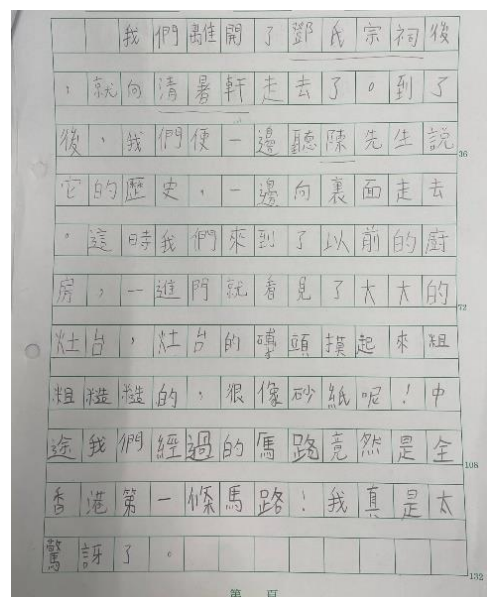 我們離開了鄧氏宗祠後
，就向清暑軒走去了。到了
後，我們便一邊聽陳先生說
36
它的歷史，一邊向裏面走去
。這時我們來到了以前的廚
房，一進門就看見了大大的
72
灶台，灶台的磚頭摸起來粗
粗糙糙的，很像砂紙呢！中
途我們經過的馬路竟然是全
108
香港第一條馬路！我真是太
驚訝了。
132
第 頁